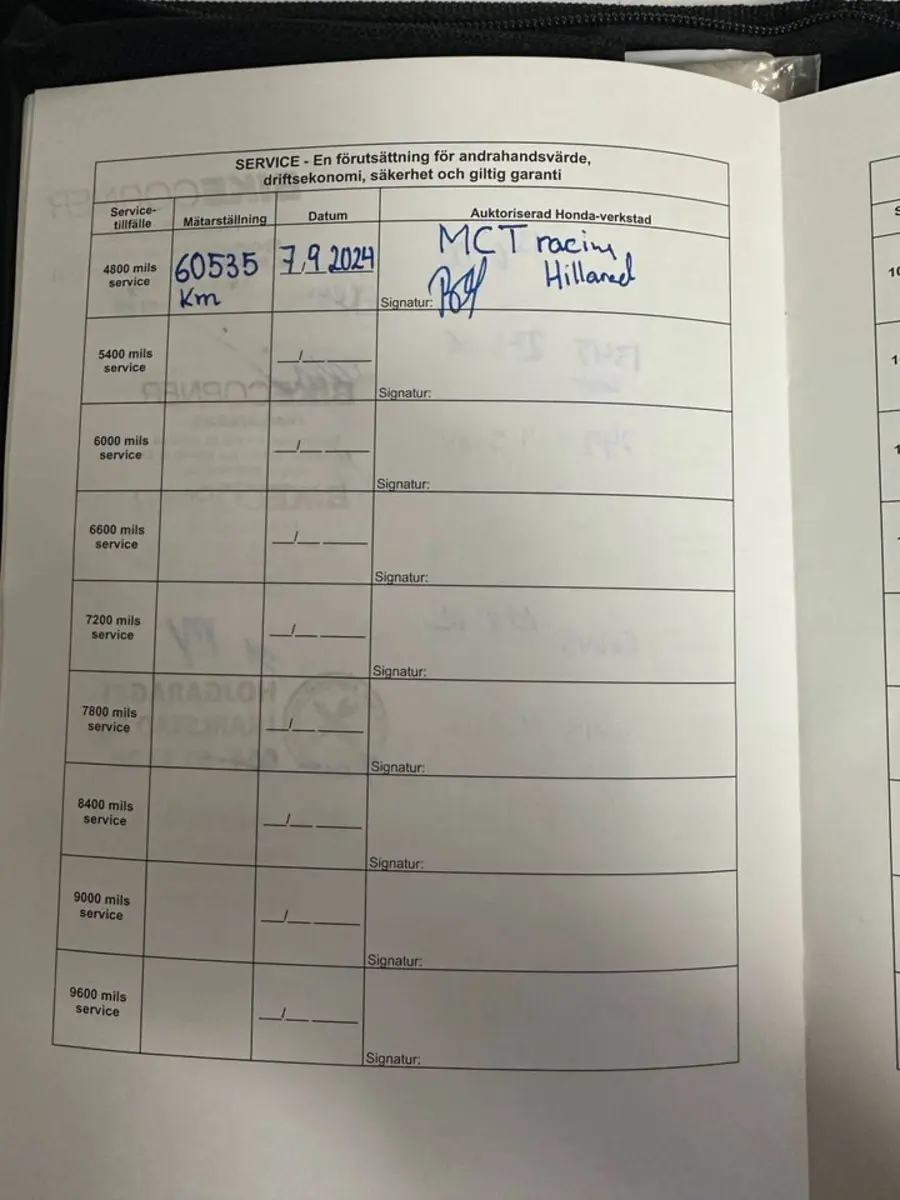 SERVICE - En förutsättning för andrahandsvärde,
driftsekonomi, säkerhet och giltig garanti
Service-
tillfälle
Mätarställning
Datum
Auktoriserad Honda-verkstad
4800 mils
service
60535
Km
7.9 2024
MCT racing
Hillared
Signatur:
5400 mils
service
__/__ ____
Signatur:
6000 mils
service
__/__ ____
Signatur:
6600 mils
service
__/__ ____
Signatur:
7200 mils
service
__/__ ____
Signatur:
7800 mils
service
__/__ ____
Signatur:
8400 mils
service
__/__ ____
Signatur:
9000 mils
service
__/__ ____
Signatur:
9600 mils
service
__/__ ____
Signatur: